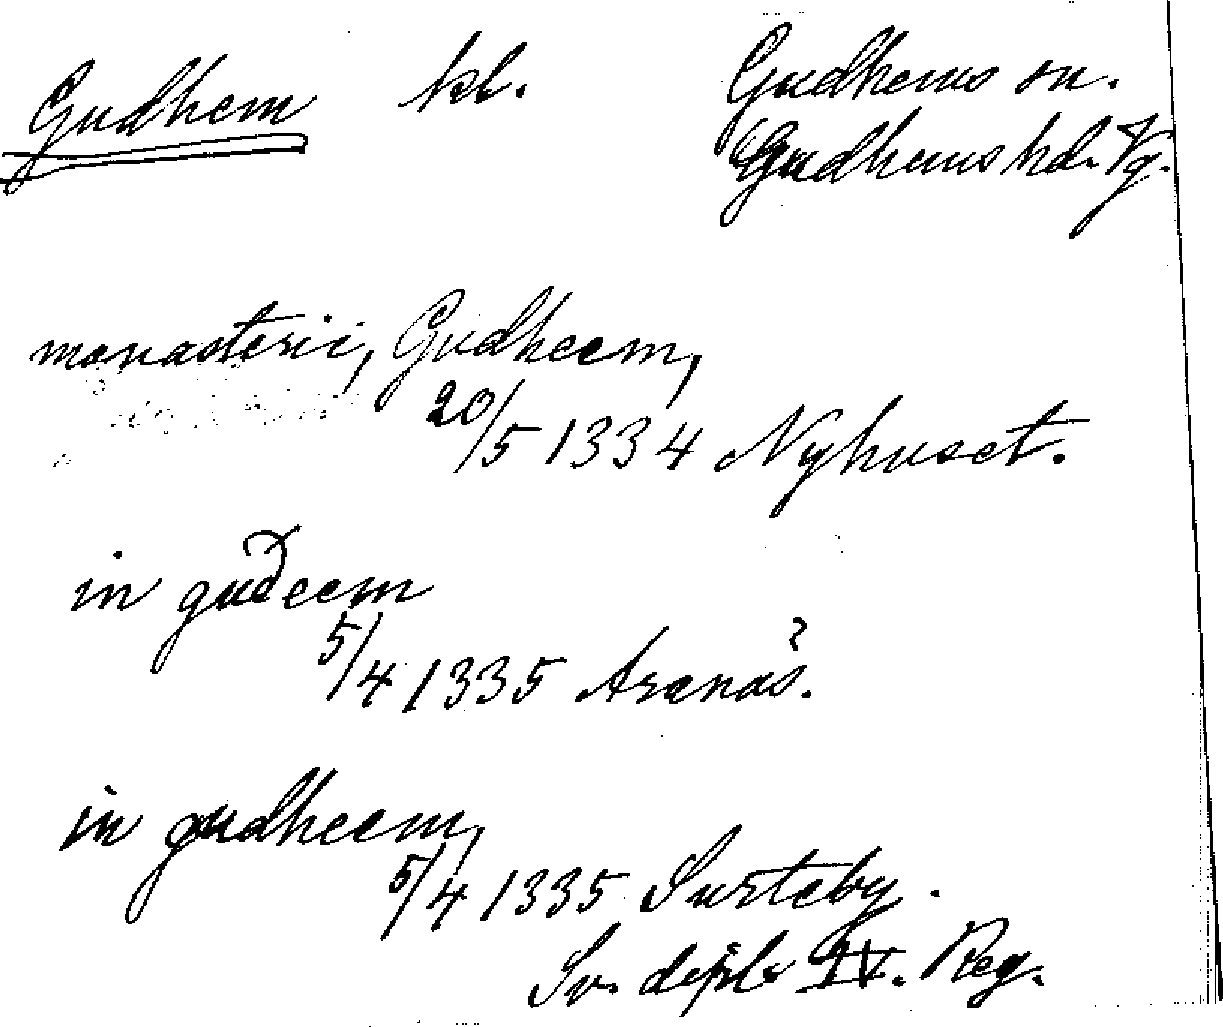 Gudhem kl. Gudhems sn.
Gudhems hd. Vg.
monasterii, Gudheem,
20/5 1334 Nyhuset.
in guðeem
5/4 1335 Aranäs.
in gudheem,
5/4 1335 Surteby.
Sv. dipl. IV. Reg.